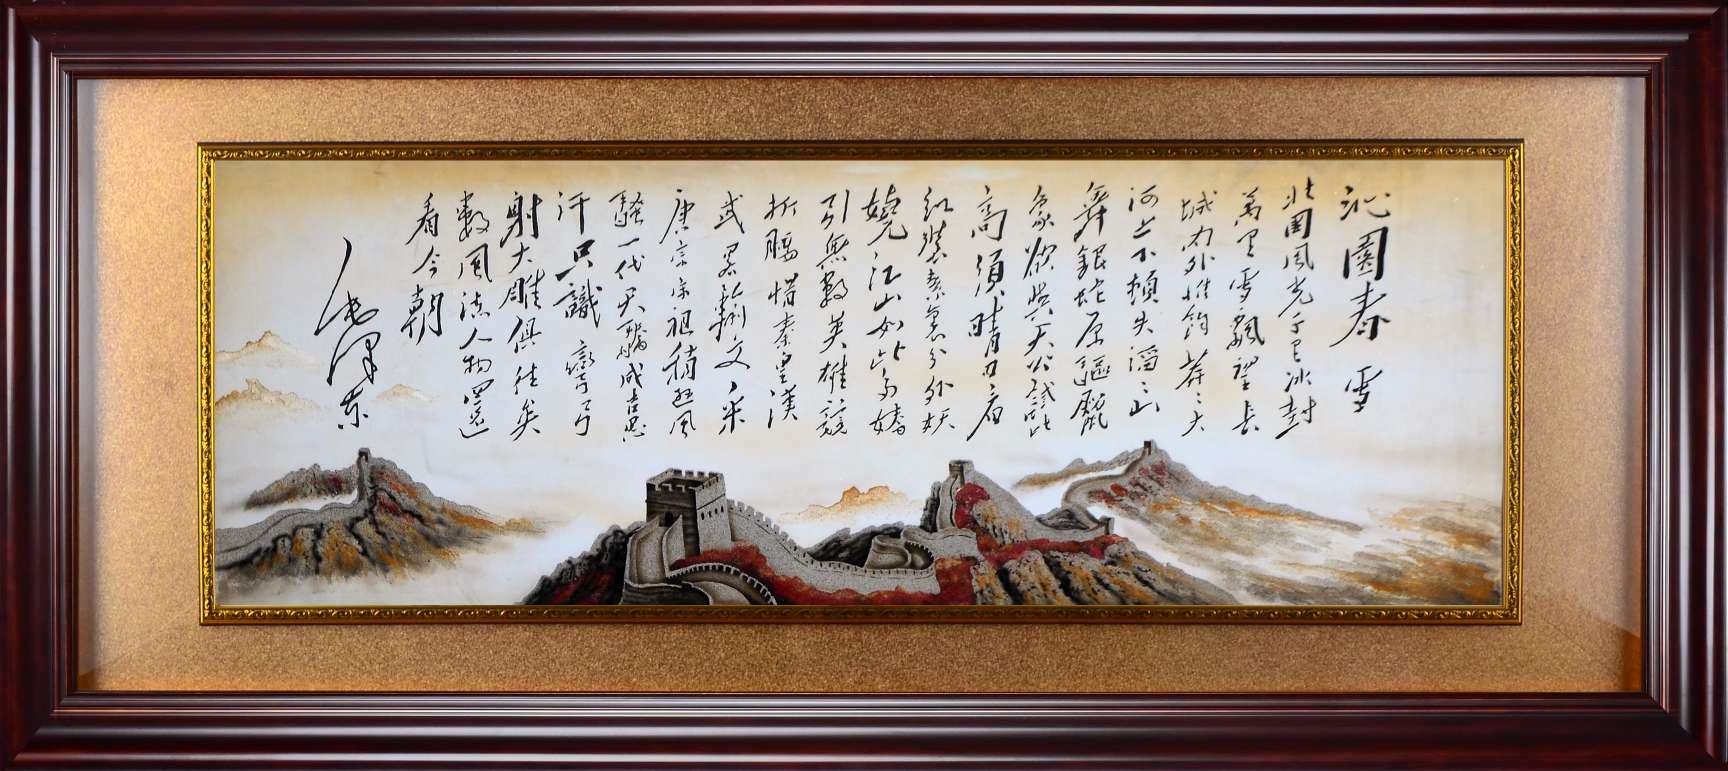 沁園春 雪
北國風光千里冰封
萬里雪飄望長
城內外惟餘莽〻大
河上下頓失滔〻山
舞銀蛇原驅臘
象欲與天公試比
高須晴日看
紅裝素裹分外妖
嬈江山如此多嬌
引無數英雄競
折腰惜秦皇漢
武略輸文采
唐宗宋祖稍遜風
騷一代天驕成吉思
汗只識彎弓
射大雕俱往矣
數風流人物還
看今朝
毛澤東